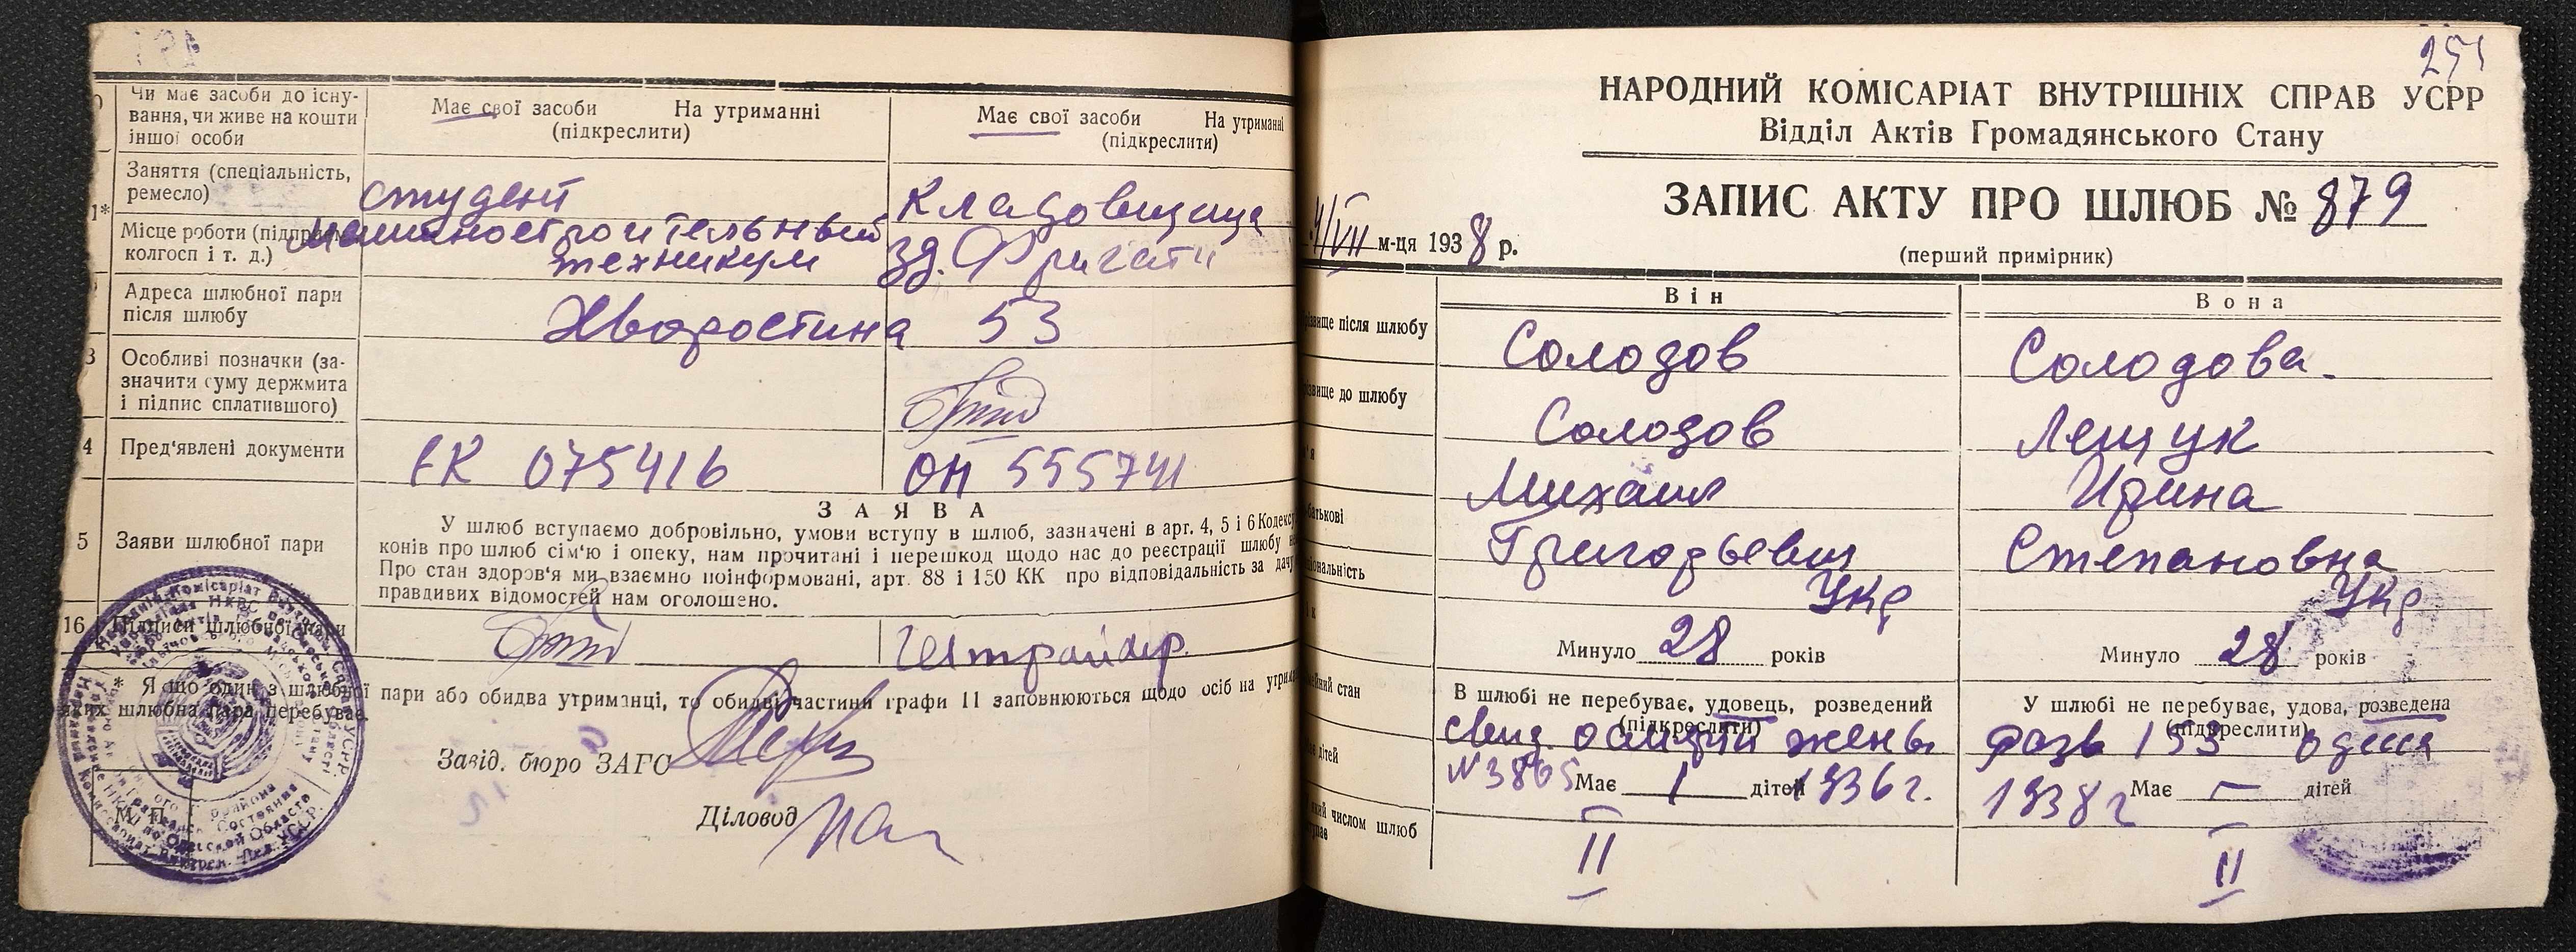 Чи має засоби до існу-
вання, чи живе на кошти
іншої особи
Має свої засоби На утриманні
(підкреслити)
Має свої засоби На утриманні
(підкреслити)
1*
Заняття (спеціальність,
ремесло)
студент
Кладовщица
Місце роботи (підприєм
колгосп і т. д.)
машиностроительный
техникум
Адреса шлюбної пари
після шлюбу
Хворостина 53
3
Особливі позначки (за-
значити суму держмита
і підпис сплатившого)
4
Пред'явлені документи
ЕК 075416
ОН 555741
5
Заяви шлюбної пари
ЗАЯВА
У шлюб вступаємо добровільно, умови вступу в шлюб, зазначені в арт. 4, 5 і 6 Кодексу
конів про шлюб сім'ю і опеку, нам прочитані і перешкод щодо нас до реєстрації шлюбу
Про стан здоров'я ми взаємно поінформовані, арт. 88 і 150 КК про відповідальність за дачу
правдивих відомостей нам оголошено.
16
Підписи шлюбної пари
* Якщо один з шлюбної пари або обидва утриманці, то обидві частини графи 11 заповнюються щодо осіб на утрим
яких шлюбна пара перебуває.
Завід. бюро ЗАГС
Діловод
М. П.
251
НАРОДНИЙ КОМІСАРІАТ ВНУТРІШНІХ СПРАВ УСРР
Відділ Актів Громадянського Стану
ЗАПИС АКТУ ПРО ШЛЮБ № 879
(перший примірник)
/VII м-ця 1938 р.
Він
Вона
після шлюбу
Солодов
Солодова.
до шлюбу
Солодов
Лещук
Михаил
Ирина
батькові
Григорьевич
Степановна
Укр
Укр
Минуло 28 років
Минуло 28 років
стан
В шлюбі не перебуває, удовець, розведений
(підкреслити)
У шлюбі не перебуває, удова, розведена
(підкреслити)
жены
N 3865
1936 г.
разв 153 Одесса
1938 г
дітей
Має 1 дітей
Має – дітей
числом шлюб
II
II